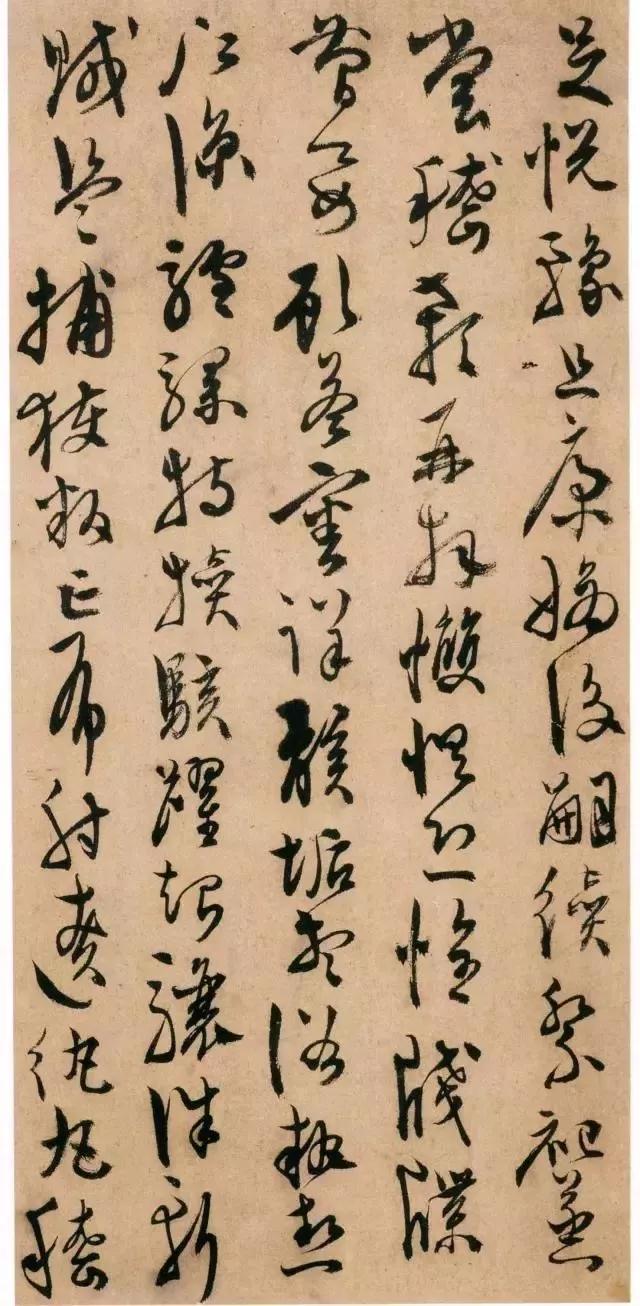 足悦豫且康嫡後嗣續祭祀蒸
嘗稽顙再拜愯懼恐惶牋牒
簡要顧答審詳骸垢想浴執熱
願涼驢騾特犢駭躍超驤誅斬
賊盜捕獲叛亡布射遼丸嵇